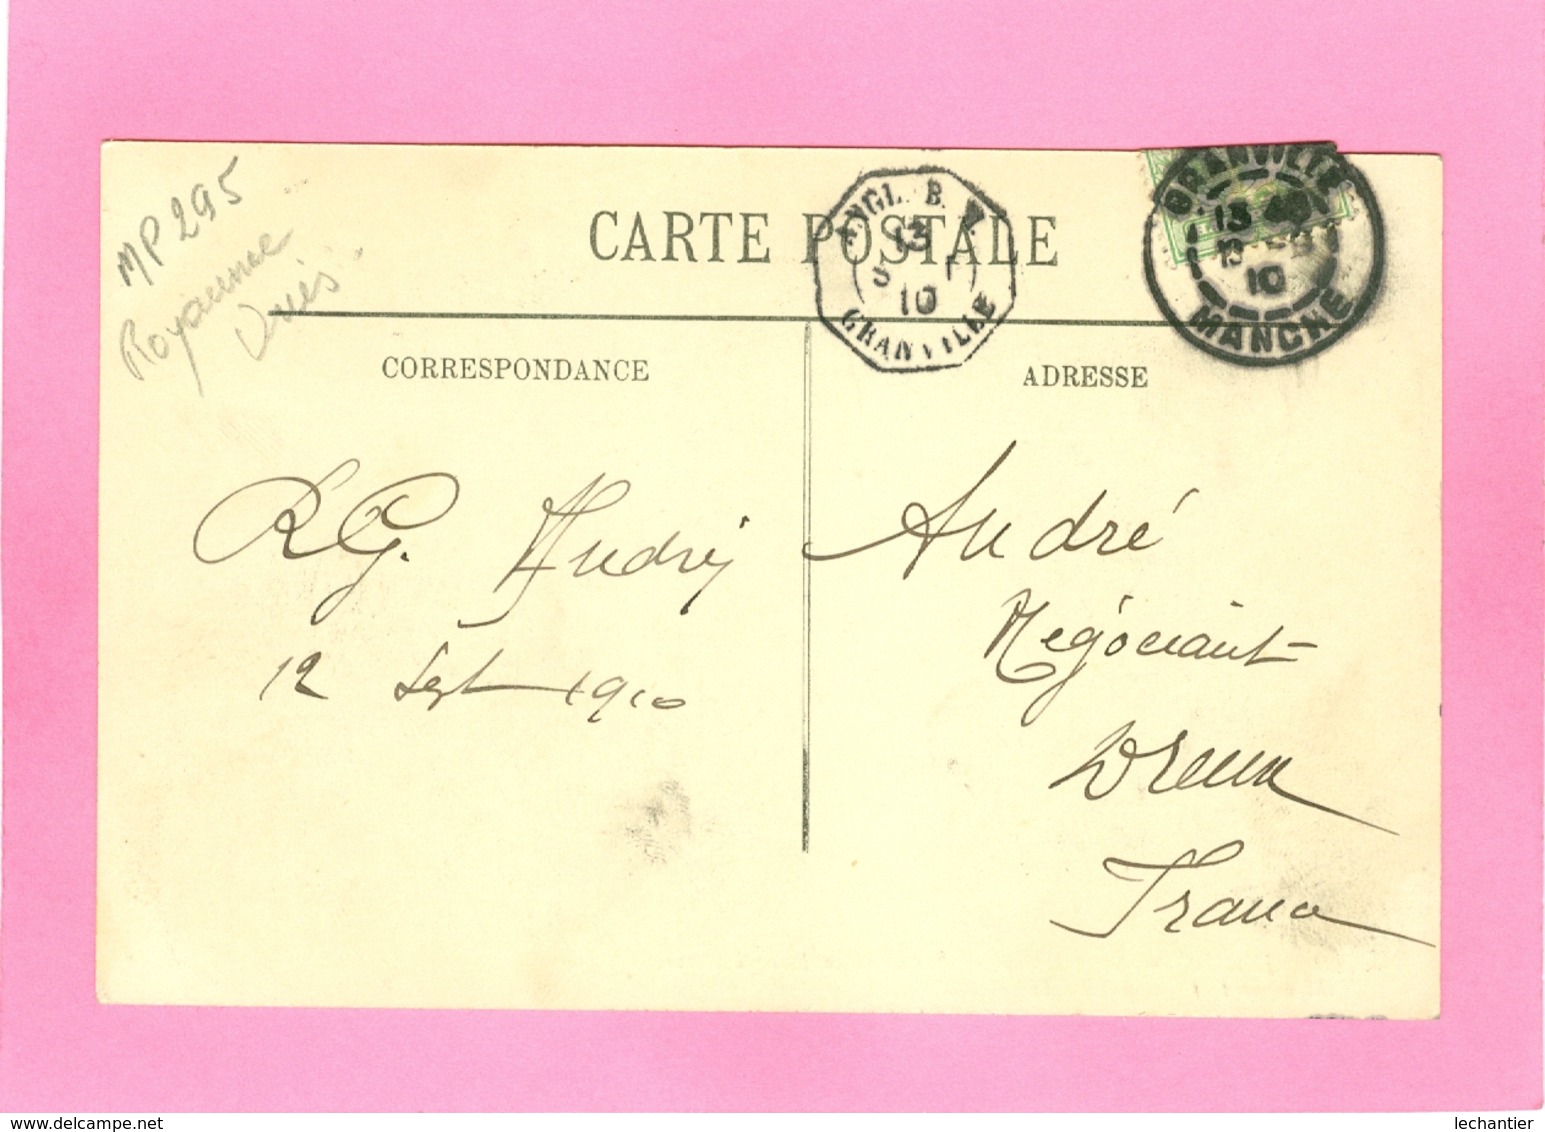 MP 295
Royaume
Unis
CARTE POSTALE
ANGL. B. M.
13
10
GRANVILLE
GRANVILLE
13
10
MANCHE
CORRESPONDANCE
ADRESSE
R G. André
12 Sept 1910
André
Négociant
Dreux
France
lechantier